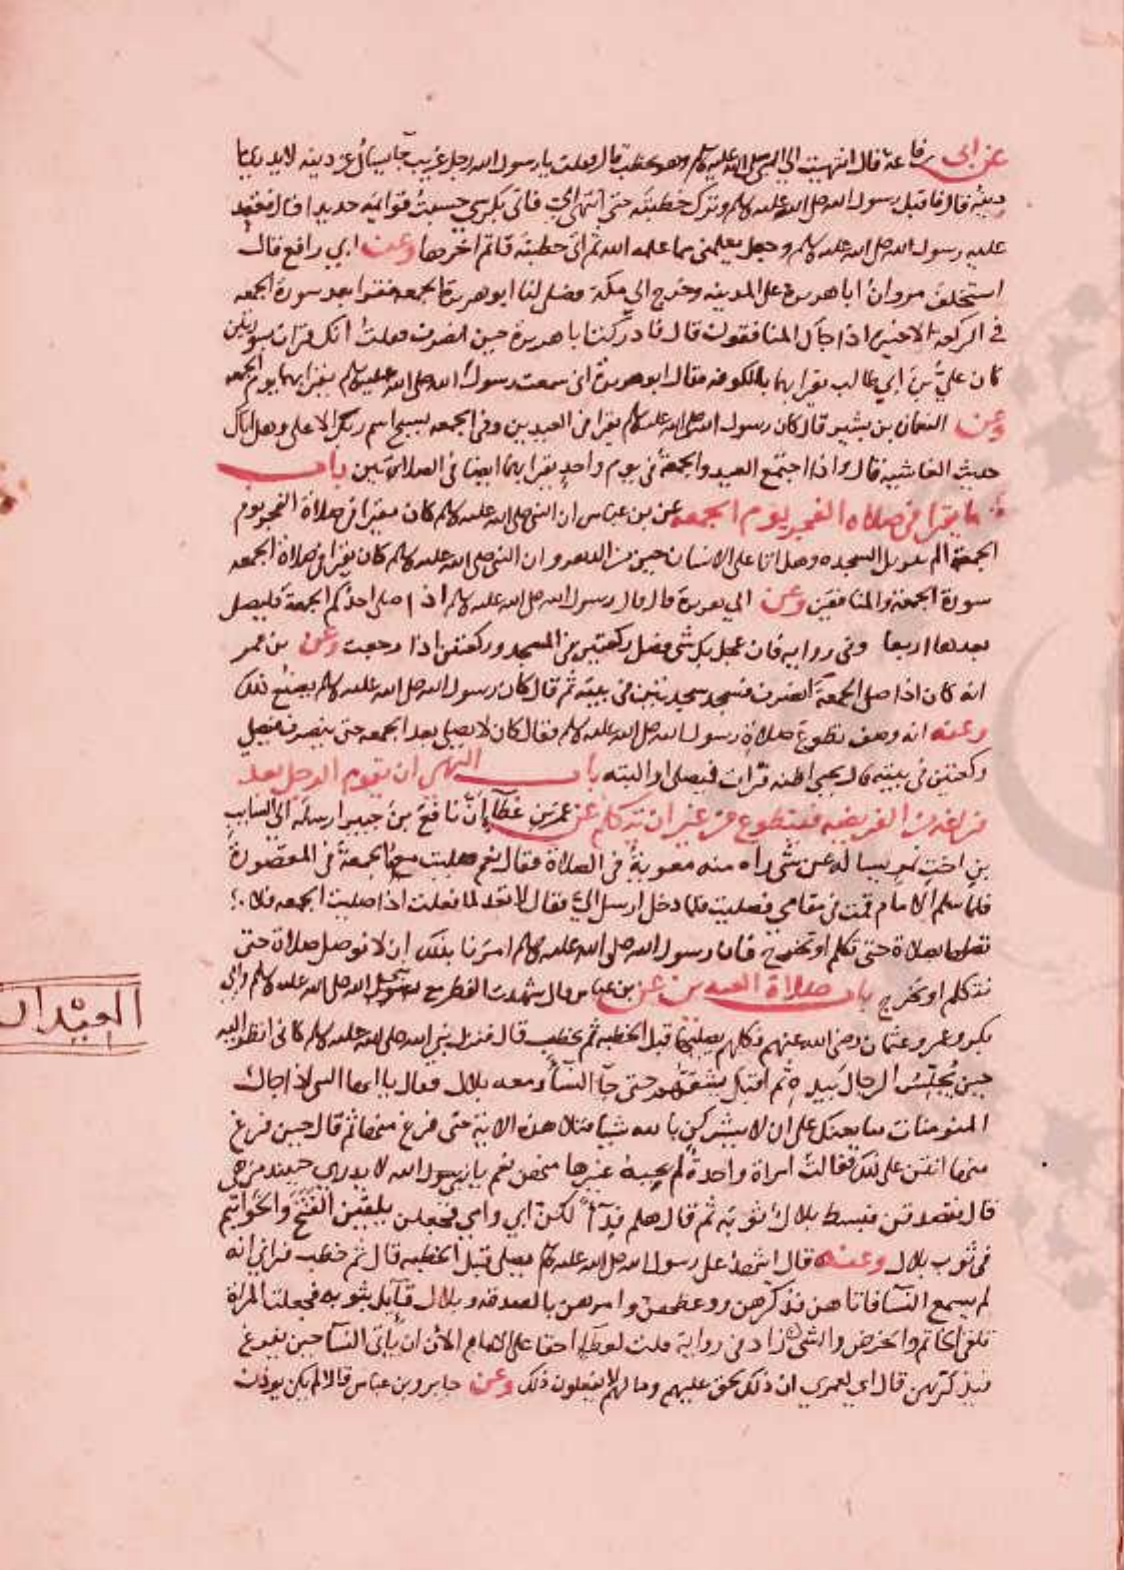 عن ابي رفاعة قال انتهيت الي النبي صلي الله عليه وسلم وهو يخطب قال فقلت يا رسول الله رجل غريب جا يسال عن دينه لا يدري ما
دينه قال فاقبل رسول الله صلي الله عليه وسلم وترك خطبته حتي انتهي الي فاتي بكرسي حسبت قوائمه حديدا قال فقعد
عليه رسول الله صلي الله عليه وسلم وجعل يعلمني مما علمه الله ثم اتي خطبته فاتم اخرها وعن ابي رافع قال
استخلف مروان ابا هريرة علي المدينه وخرج الي مكة فصلي لنا ابو هريرة الجمعه فقرا بعد سورة الجمعه
في الركعة الاخيرة اذا جاك المنافقون قال فادركت ابا هريرة حين انصرف فقلت انك قرات سورتين
كان علي بن ابي طالب يقرا بهما بالكوفه فقال ابو هريرة اني سمعت رسول الله صلي الله عليه وسلم يقرا بهما يوم الجمعه
وعن النعمان بن بشير قال كان رسول الله صلي الله عليه وسلم يقرا في العيدين وفي الجمعه بسبح اسم ربك الاعلي وهل اتاك
حديث الغاشية قال واذا اجتمع العيد والجمعة في يوم واحد يقرا بهما ايضا في الصلاتين باب
ما يقرا في صلاه الفجر يوم الجمعه عن بن عباس ان النبي صلي الله عليه وسلم كان يقرا في صلاة الفجر يوم
الجمعة الم تنزيل السجده وهل اتا علي الانسان حين من الدهر وان النبي صلي الله عليه وسلم كان يقرا في صلاة الجمعه
سورة الجمعة والمنافقين وعن ابي هريرة قال قال رسول الله صلي الله عليه وسلم اذا صلي احدكم الجمعة فليصل
بعدها اربعا وفي روايه فان عجل بك شي فصل ركعتين في المسجد وركعتين اذا رجعت وعن بن عمر
انه كان اذا صلي الجمعة انصرف فسجد سجدتين في بيته ثم قال كان رسول الله صلي الله عليه وسلم يصنع ذلك
وعنه انه وصف تطوع صلاة رسول الله صلي الله عليه وسلم فقال كان لا يصلي بعد الجمعه حتي ينصرف فيصلي
ركعتين في بيته قال يحيي اظنه قرات فيصلي او البته باب النهي ان يقوم الرجل بعد
فراغه من الفريضه فيتطوع من غير ان يتكلم عن عمر بن عطا ان نافع بن جبير ارسله الي السايب
بن اخت نمر يساله عن شي راه منه معوية في الصلاة فقال نعم صليت معه الجمعة في المقصورة
فلما سلم الامام قمت في مقامي فصليت فلما دخل ارسل الي فقال لا تعد لما فعلت اذا صليت الجمعه فلا
تصلها بصلاة حتي تكلم او تخرج فان رسول الله صلي الله عليه وسلم امرنا بذلك ان لا نوصل صلاة حتي
نتكلم او نخرج باب صلاة العيدين عن بن عباس قال شهدت الفطر مع رسول الله صلي الله عليه وسلم وابي
بكر وعمر وعثمان رضي الله عنهم فكلهم يصليها قبل الخطبه ثم يخطب قال فنزل نبي الله صلي الله عليه وسلم كاني انظر اليه
حين يجلس الرجال بيده ثم اقبل يشقهم حتي جا النسا ومعه بلال فقال يا ايها النبي اذا جاك
المومنات يبايعنك علي ان لا يشركن بالله شيا فتلا هذه الاية حتي فرغ منها ثم قال حين فرغ
منها انتن علي ذلك فقالت امراة واحدة لم يجبه غيرها منهن نعم يا نبي الله لا يدري حينئذ من هي
قال فتصدقن فبسط بلال ثوبه ثم قال هلم فدا لكن ابي وامي فجعلن يلقين الفتخ والخواتيم
في ثوب بلال وعنه قال اشهد علي رسول الله صلي الله عليه وسلم يصلي قبل الخطبه قال ثم خطب فراي انه
لم يسمع النسا فاتاهن فذكرهن ووعظهن وامرهن بالصدقه وبلال قايل بثوبه فجعلت المراة
تلقي الخاتم والخرص والشي زاد في رواية قلت لعطا احقا علي الامام الان ان ياتي النسا حين يفرغ
فيذكرهن قال اي لعمري ان ذلك لحق عليهم وما لهم لا يفعلون ذلك وعن جابر وبن عباس قالا لم يكن يوذن
العيدان